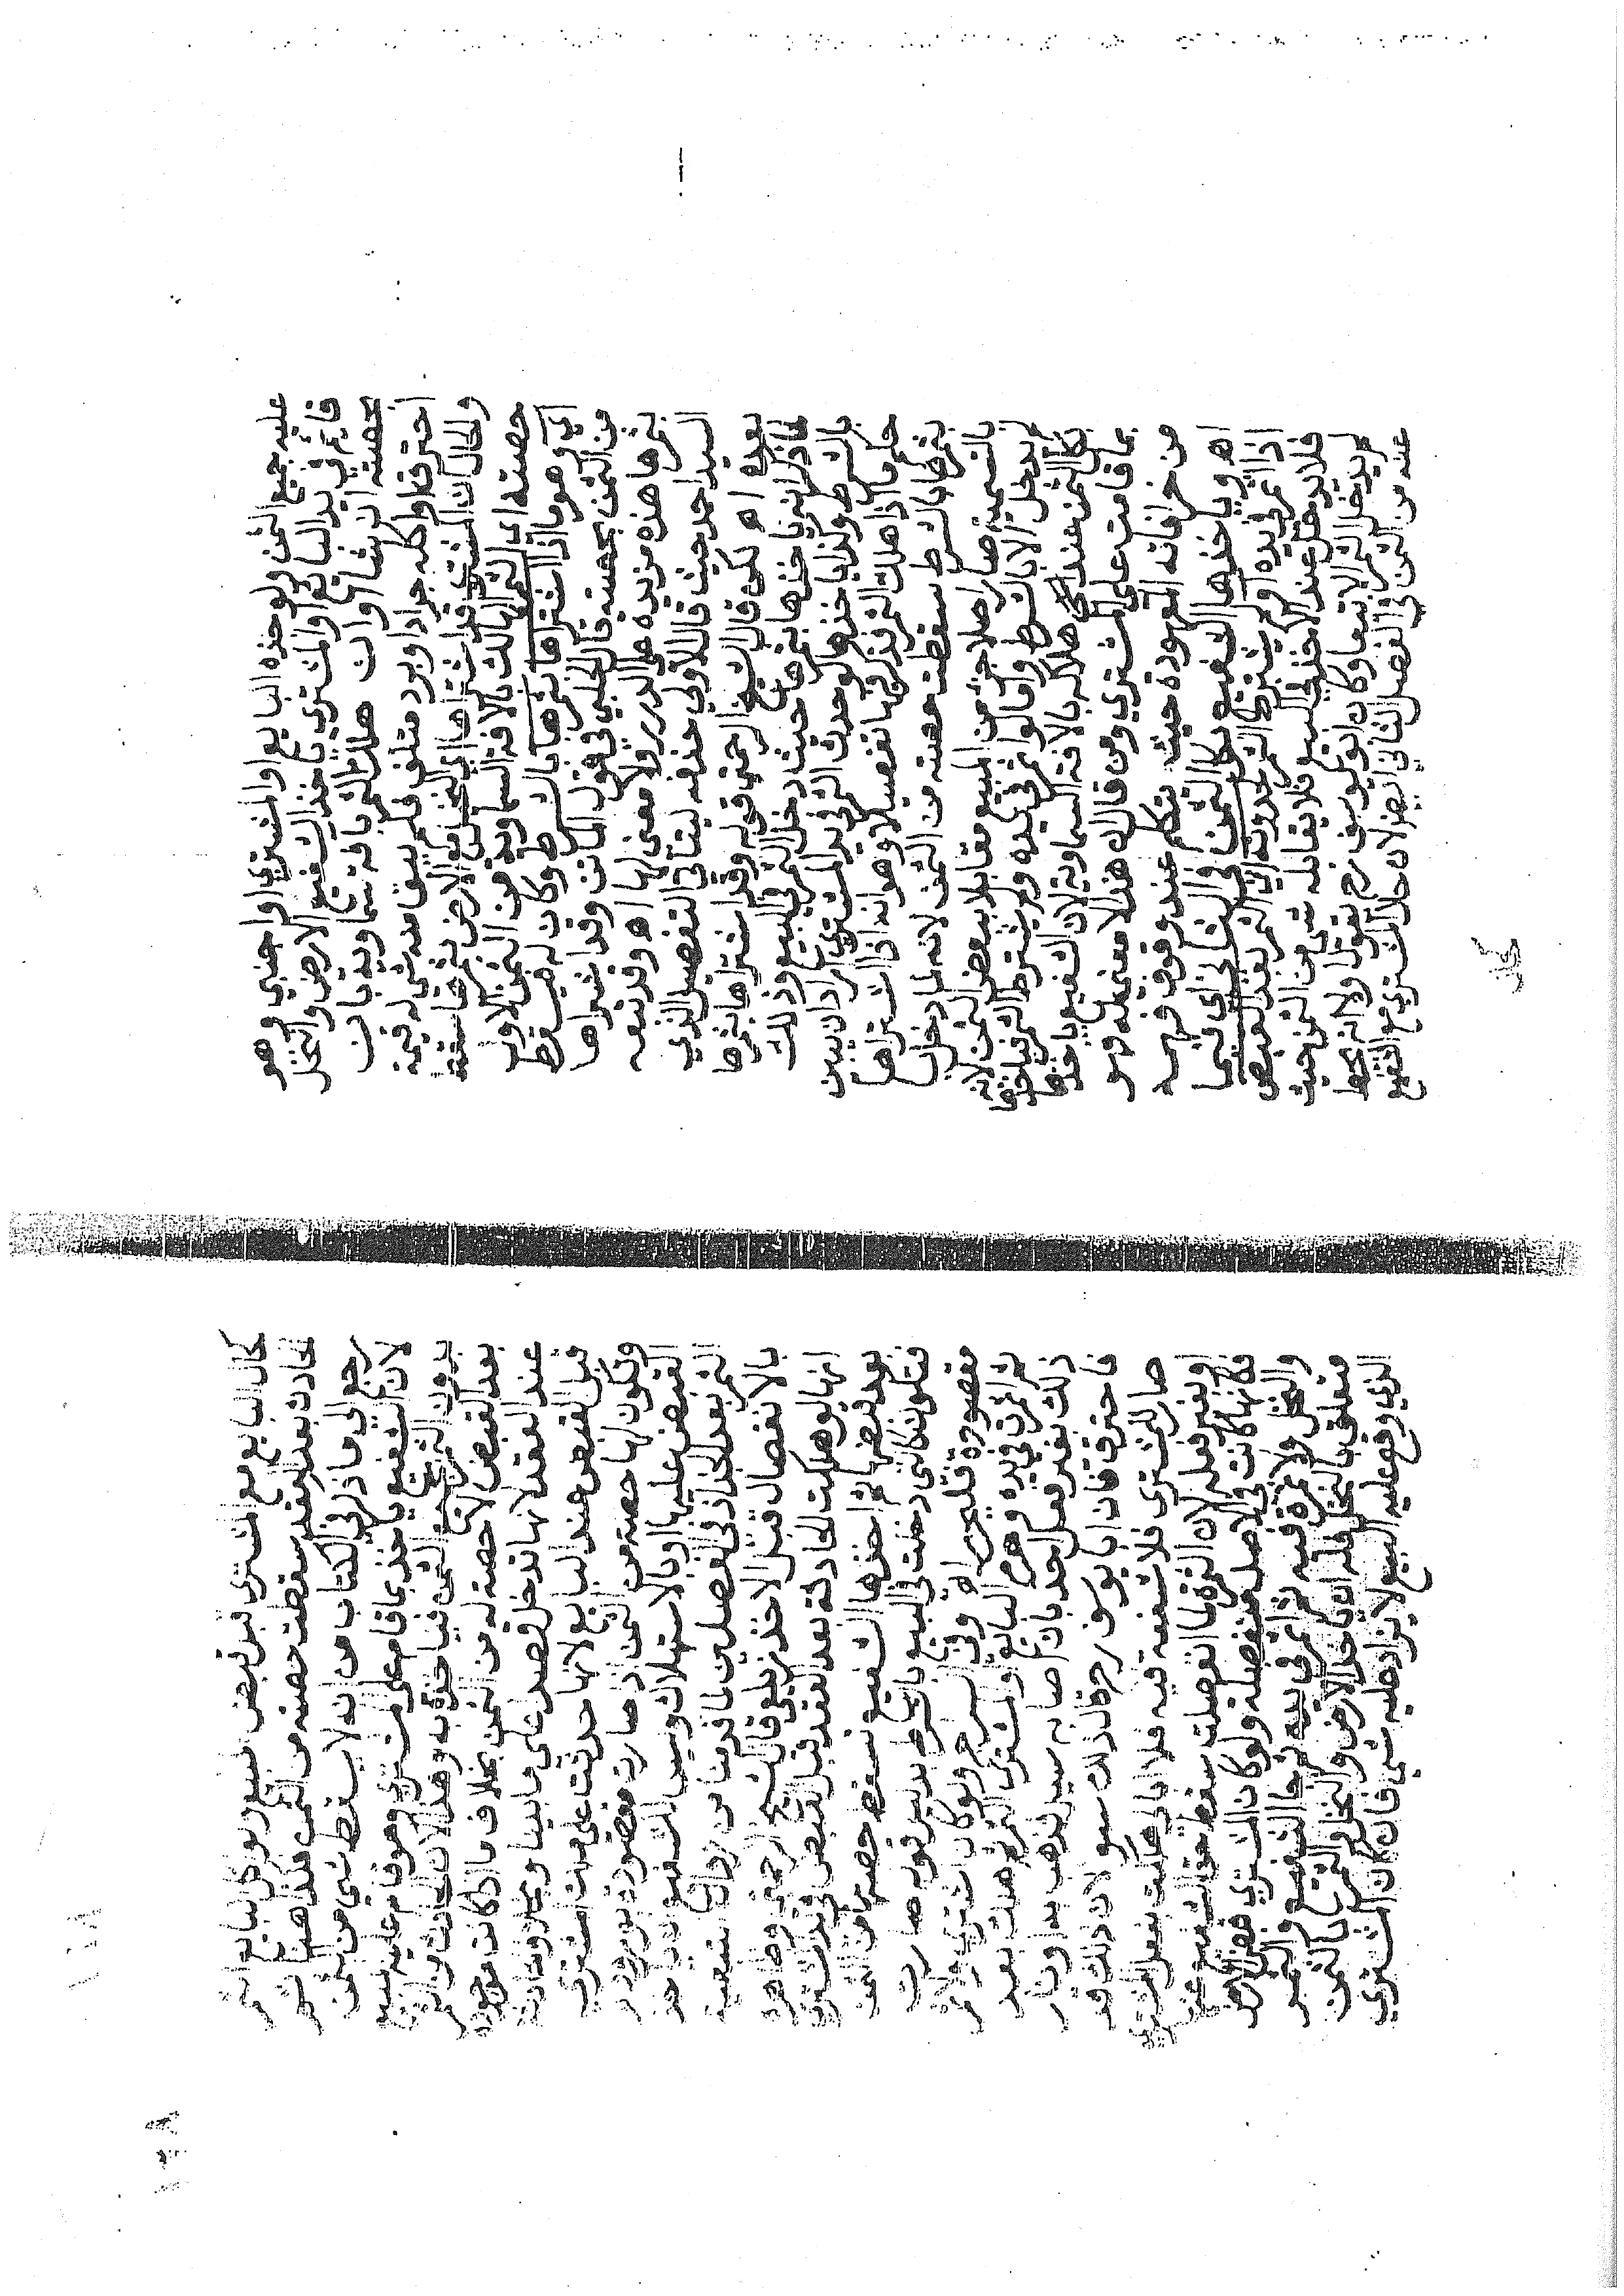 عليه جميع الثمن ولو حذه البايع او المشتري او اجنبي وهو
قايم في يد البايع او المشتري ياخذ الشفيع الارض والنخل
بحصته ان شاء وان هلك الثمر بافة سماوية بان
احترق او اكله جراد او برد متلف فلم يبق منه شي له قيمة
والحال ان المشتري قد اشتراها اي النخل مع الارض بثمرها سقط
حصته اي الثمر الهالك بالافة السماوية من الثمن الاول
اي وهو ما اذا اشتراها بثمرها بالشرط وكان له فيسقط
من الثمن بحصته قال الحلبي في قول الماتن وقد اشتراها
بثمرها هذه مزيدة على الدرر ولا معنى لها اه وقد تبعه
السيد احمد حيث قال الاولى حذفه ليتاتى التفصيل الذي
بعده اه لكن قال الشيخ الرحمتي قوله وقد اشتراها بثمرها
لما ذكر انه ياخذها بثمرها حيث دخل الثمر في البيع وذلك
بالشرط وكذا ياخذها لو حدث الثمر في يد المشتري اراد ان يبين
حكم ما اذا هلك الثمر فذكر فيها تفصيلا وهو انه اذا اشتراها
بثمرها بالشرط سقطت حصته من الثمن لانه لما دخل
بالتسمية صار اصلا جزء من المبيع مقابلا ببعض الثمن لانه
لم يدخل الا بالشرط واما لو اثمر في يده ولم يشترط الثمر فياخذها
بكل الثمن عند هلاكه بالافة السماوية لان الشفيع ياخذها
بما قامت على المشتري ومن قال ان هذا لا معنى له فهو
من خرافاته المعهودة حيث تكلم عند وقوف فهمه
اه وياخذها الشفيع بكل الثمن في الثاني اي فيما
اذا اثمر في يده او لم يشترط الثمر لحدوثه اي الثمر بعد القبض
فلا يدخل عند الاخذ في البيع فلا يقابله شي من الثمن حيث
لم يدخل الثمر الا تبعا وكان ابو يوسف رح يقول اولا انه يحط
عنه من الثمن في الفصل الثاني ايضا لان حال المشتري مع الشفيع
كحال
كحال البايع مع المشتري قبل قبض المبيع ولو اكل البايع الثمر
الحادث بعد العقد سقطت حصته من الثمن فكذا هنا ثم
رجع الى ما ذكر في الكتاب من انه لا يسقط شي من الثمن
لان الشفيع ياخذ بما قام على المشتري وهو قام عليه المبيع
بدون الثمر بجميع الثمن فياخذه به وهذا لان الحادث من الثمر
بعد القبض لا حصة له من الثمن بخلاف ما اذا كانت موجودة
عند العقد لانها تدخل قصدا على ما بينا وبخلاف الحادثة
قبل القبض عند البايع لانها حدثت على ملك المشتري
وتكون لها حصة من الثمن اذا صارت مقصودة بورود
القبض عليها او بالاستهلاك وليس للشفيع ان ياخذ
الثمر بعد الجذاذ في الفصلين لما قدمنا من زوال التبعية
بالانفصال قبل الاخذ زيلعي قال الشيخ الرحمتي وظاهره
انها لو هلكت الحادثة بعد العقد قبل القبض في يد المشتري
بعد قبضها ثم اخذها الشفيع تسقط حصتها من الثمن
فتكون كالتي دخلت في البيع بالشرط بدليل قوله صارت
مقصودة فليحرر اه وفي السرج ولو كان اشترى ولا ثمر
ثم اثمرت في يده وهو البايع او المشترى الثمر ثم هلك بعد
ذلك بغير فعل احد بان اصابه سيل فذهب به او نار
فاحترق فان ابا يوسف رح قال ذلك سوا لان ذلك قد
صار للمشتري فلا شفعة فيه فلا ابالي هلكت بفعل المشتري
او بغير فعله لان الثمرة لما انفصلت سقط حق الشفيع عنها
فكانها كانت في الاصل منفصلة ولو كان المشتري قبض الارض
والنخل ولا ثمرة فيه ثم اثمر في يده ثم جا الشفيع والثمر
متعلق بالنخل فله ان ياخذ الارض والنخل والثمر بالثمن
الذي وقع عليه البيع لا يزاد عليه شي فان كان المشتري